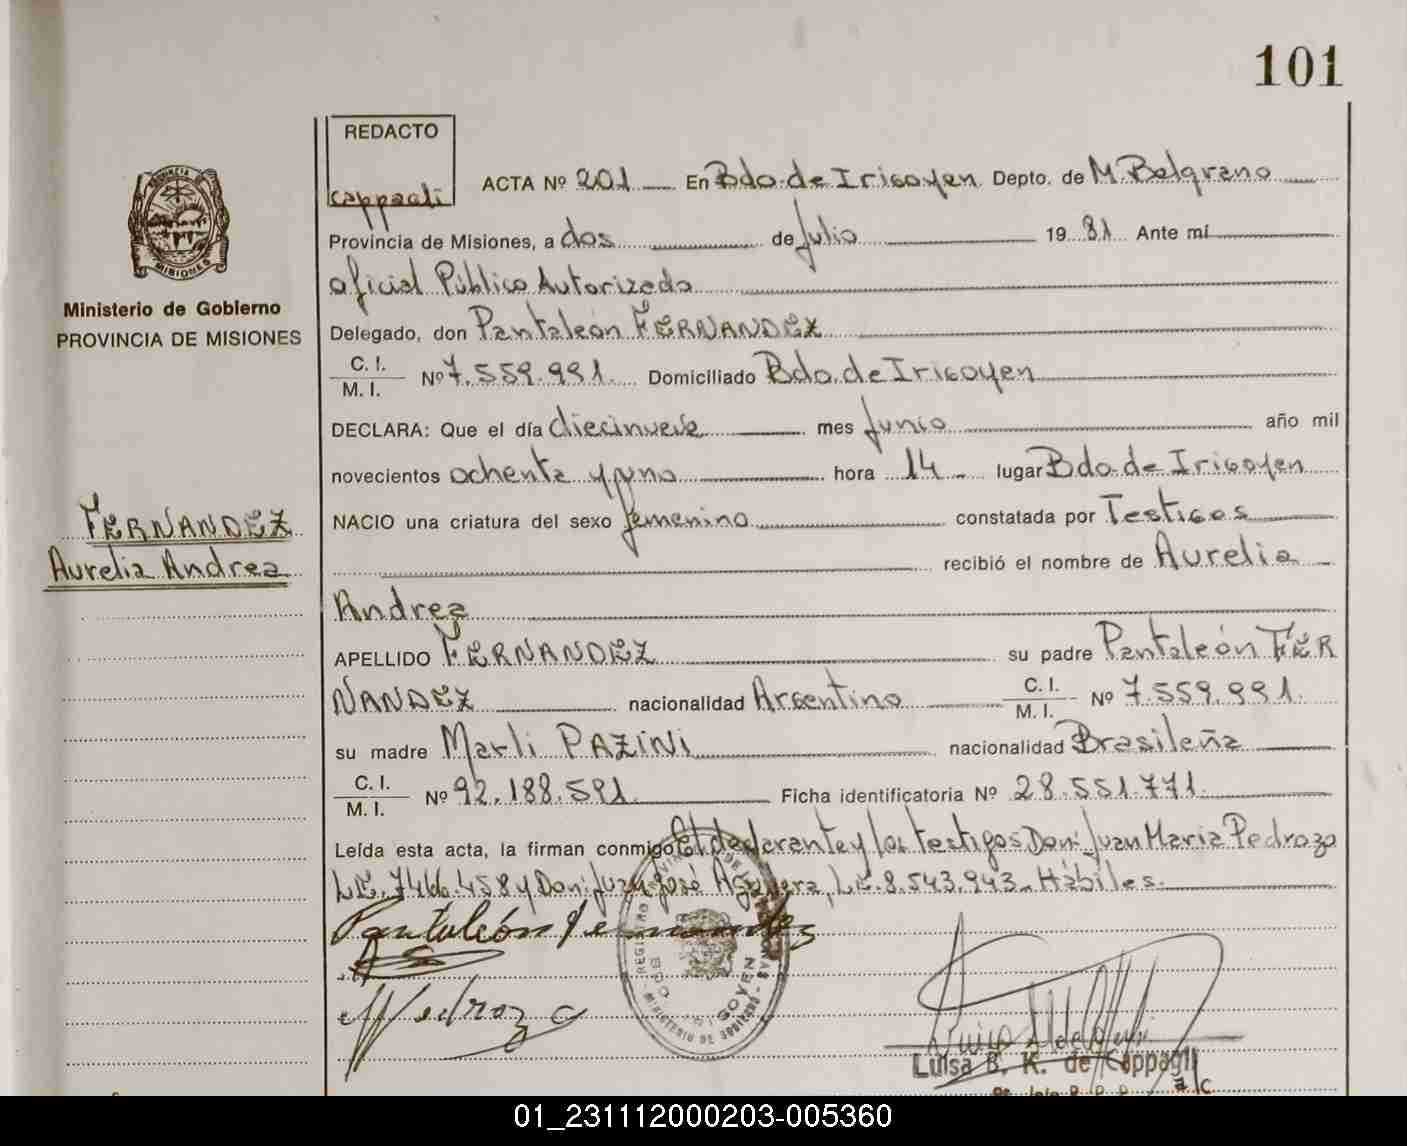 101
REDACTO
cappagli
ACTA Nº 201 En Bdo. de Irigoyen Depto. de M. Belgrano
Provincia de Misiones, a dos de Julio 19 81 Ante mí
oficial Público Autorizado
Delegado, don Pantaleón FERNANDEZ
C. I.
M. I.
Nº 7.559.991. Domiciliado Bdo. de Irigoyen
DECLARA: Que el día diecinueve mes Junio año mil
novecientos ochenta y uno hora 14 lugar Bdo. de Irigoyen
NACIO una criatura del sexo femenino constatada por Testigos
recibió el nombre de Aurelia
Andrea
APELLIDO FERNANDEZ su padre Pantaleón FER
NANDEZ nacionalidad Argentino C. I. M. I. Nº 7.559.991.
su madre Marli PAZINI nacionalidad Brasileña
C. I.
M. I.
Nº 92.188.591 Ficha identificatoria Nº 28.551.771.
Leída esta acta, la firman conmigo El declarante y los testigos Don: Juan Maria Pedrozo
L.E. 7.416.458 y Don: Juan José Aguilera, L.E. 8.543.943. Hábiles.
Pantaleón Fernandez
Pedrozo
Luisa B. K. de Cappagli
PROVINCIA DE
MISIONES
Ministerio de Gobierno
PROVINCIA DE MISIONES
FERNANDEZ
Aurelia Andrea
01_231112000203-005360